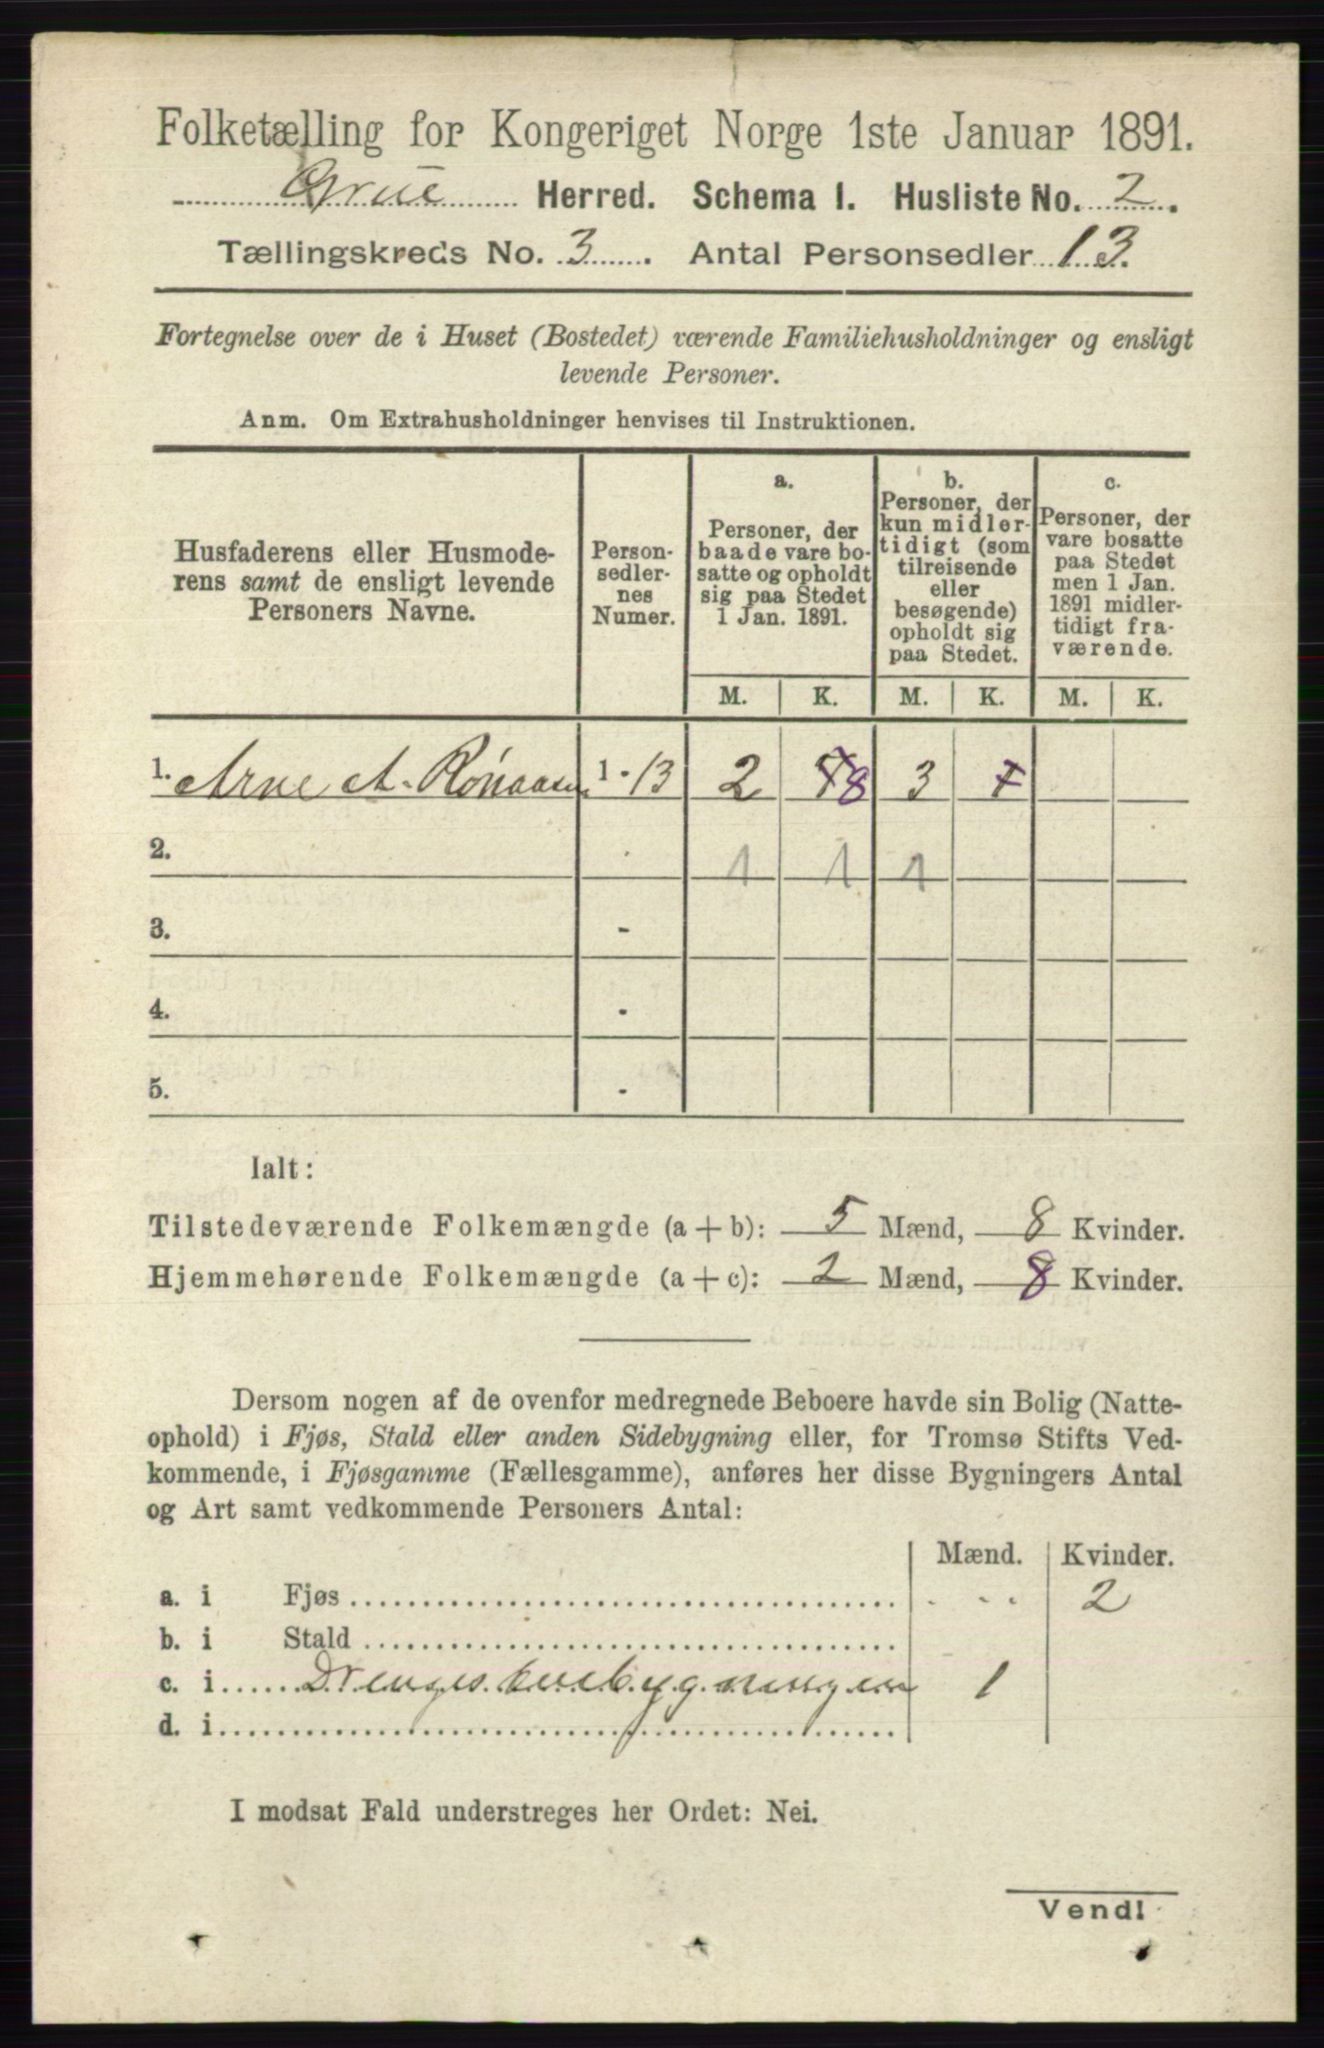 Folketælling for Kongeriget Norge 1ste Januar 1891.
Grue Herred. Schema I. Husliste No. 2.
Tællingskreds No. 3. Antal Personsedler 13.
Fortegnelse over de i Huset (Bostedet) værende Familiehusholdninger og ensligt
levende Personer.
Anm. Om Extrahusholdninger henvises til Instruktionen.
Husfaderens eller Husmode-
rens samt de ensligt levende
Personers Navne.
Person-
sedler-
nes
Numer.
a.
Personer, der
baade vare bo-
satte og opholdt
sig paa Stedet
1 Jan. 1891.
b.
Personer, der
kun midler-
tidigt (som
tilreisende
eller
besøgende)
opholdt sig
paa Stedet.
c.
Personer, der
vare bosatte
paa Stedet
men 1 Jan.
1891 midler-
tidigt fra-
værende.
M. K. M. K. M. K.
1. Arne A. Rønaasen 1 - 13 2 8 3
2. 1 1 1
3. -
4. -
5. -
Ialt:
Tilstedeværende Folkemængde (a + b): 5 Mænd, 8 Kvinder.
Hjemmehørende Folkemængde (a + c): 2 Mænd, 8 Kvinder.
Dersom nogen af de ovenfor medregnede Beboere havde sin Bolig (Natte-
ophold) i Fjøs, Stald eller anden Sidebygning eller, for Tromsø Stifts Ved-
kommende, i Fjøsgamme (Fællesgamme), anføres her disse Bygningers Antal
og Art samt vedkommende Personers Antal:
Mænd. Kvinder.
a. i Fjøs 2
b. i Stald
c. i 1
d. i
I modsat Fald understreges her Ordet: Nei.
Vend!